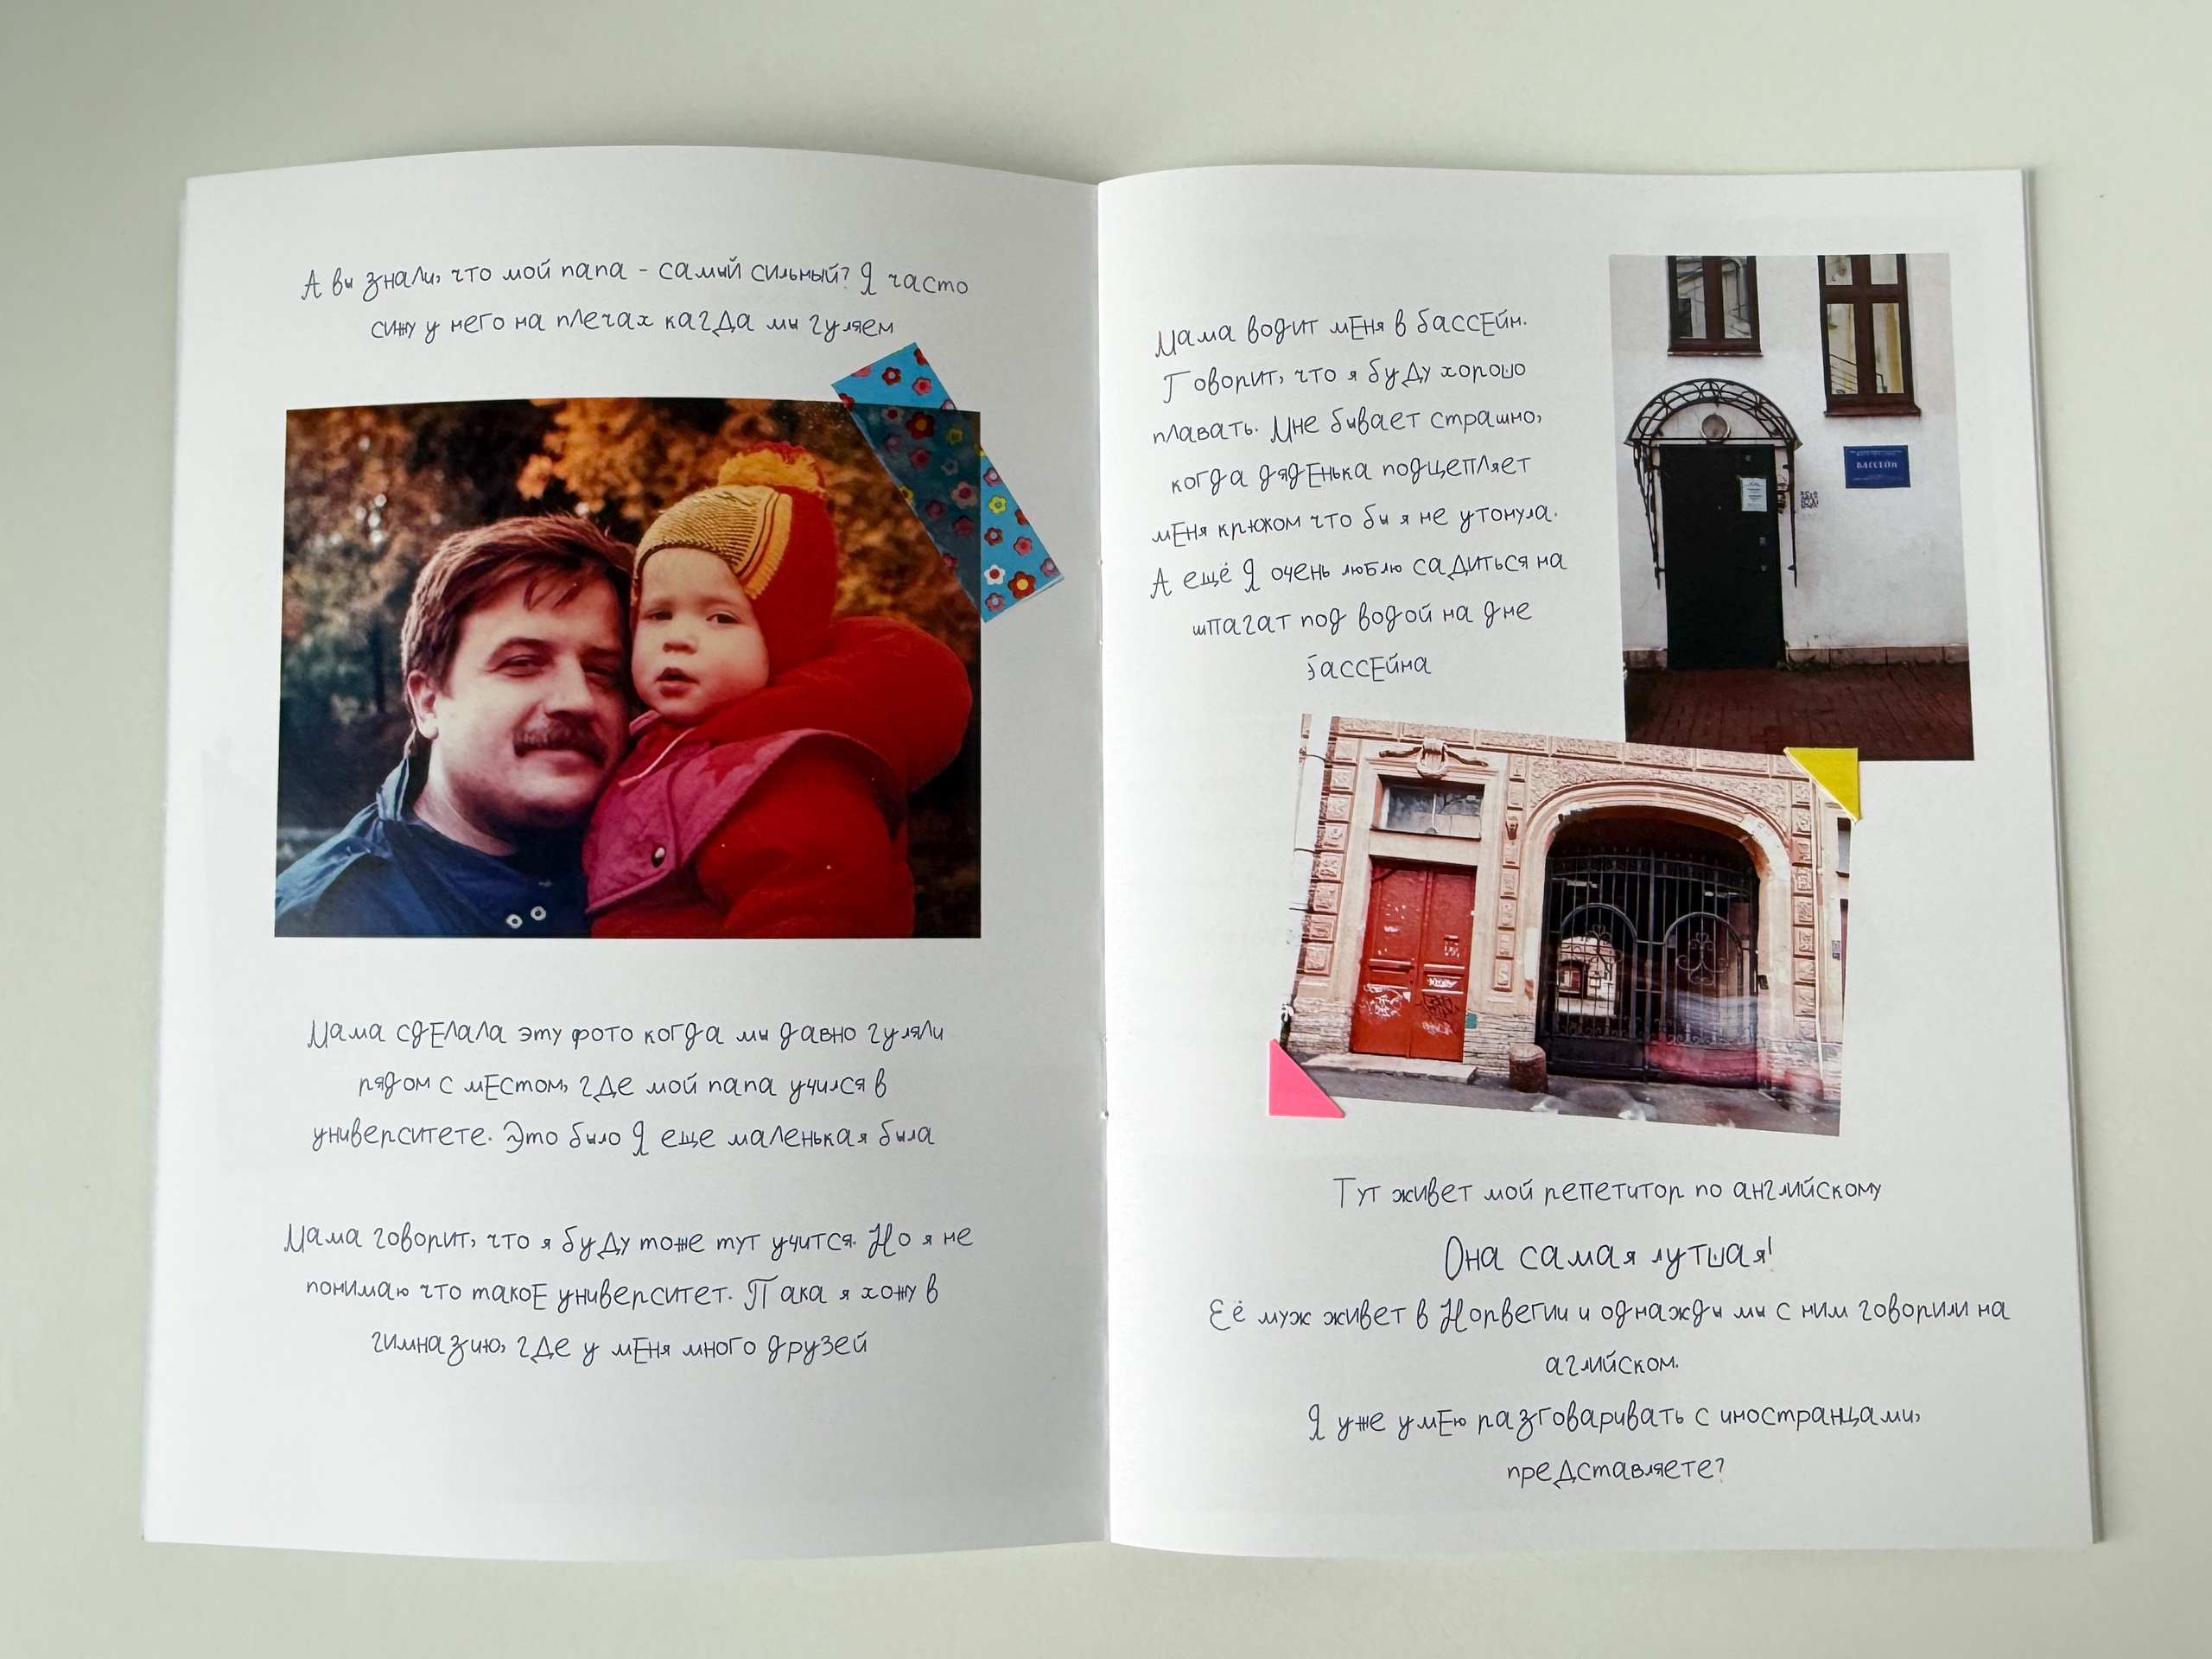 А вы знали, что мой папа - самый сильный? Я часто
сижу у него на плечах кагда мы гуляем
Мама сделала эту фото когда мы давно гуляли
рядом с местом, где мой папа учился в
университете. Это было Я еще маленькая была
Мама говорит, что я буду тоже тут учится. Но я не
понимаю что такое университет. Пака я хожу в
гимназию, где у меня много друзей
Мама водит меня в бассейн.
Говорит, что я буду хорошо
плавать. Мне бывает страшно,
когда дяденька подцепляет
меня крюком что бы я не утонула.
А ещё Я очень люблю садиться на
шпагат под водой на дне
бассейна
БАССЕЙН
Тут живет мой репетитор по английскому
Она самая лутшая!
Её муж живет в Норвегии и однажды мы с ним говорили на
аглийском.
Я уже умею разговаривать с иностранцами,
представляете?